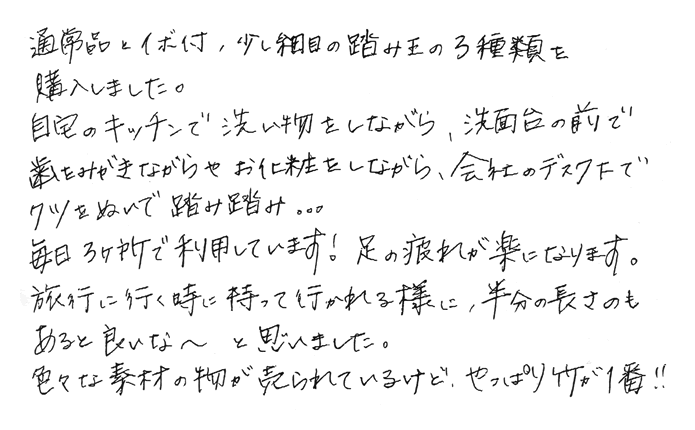 通常品とイボ付、少し細目の踏み王の3種類を
購入しました。
自宅のキッチンで洗い物をしながら、洗面台の前で
歯をみがきながらや お化粧をしながら、会社のデスク下で
クツをぬいで踏み踏み...
毎日3ヶ所で利用しています! 足の疲れが楽になります。
旅行に行く時に持って行かれる様に、半分の長さのも
あると良いな〜 と思いました。
色々な素材の物が売られているけど、やっぱり竹が1番!!